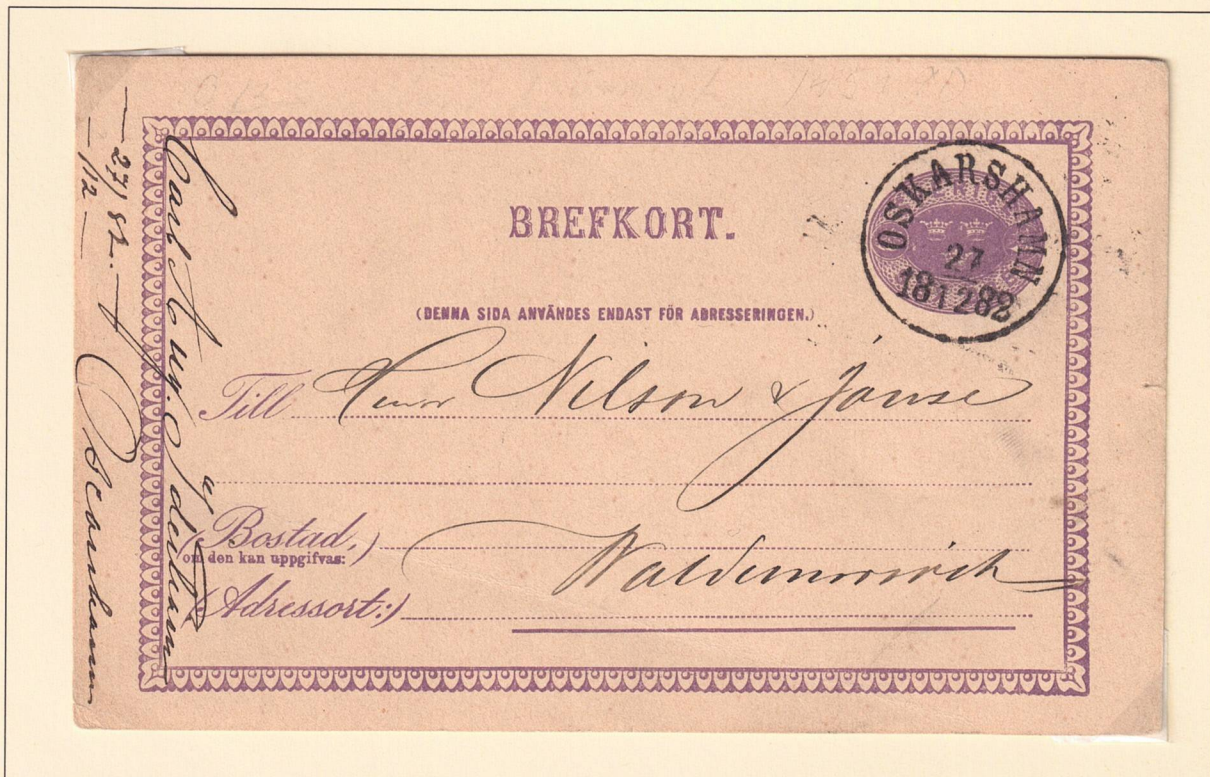 BREFKORT.
OSKARSHAMN
27
18 12 82
(DENNA SIDA ANVÄNDES ENDAST FÖR ADRESSERINGEN.)
Till Herrar Nilson & Jonse
(Bostad,)
om den kan uppgifvas:
(Adressort:) Waldemarsvik
Carl Aug.
Oscarshamn
— 27/12 82. —